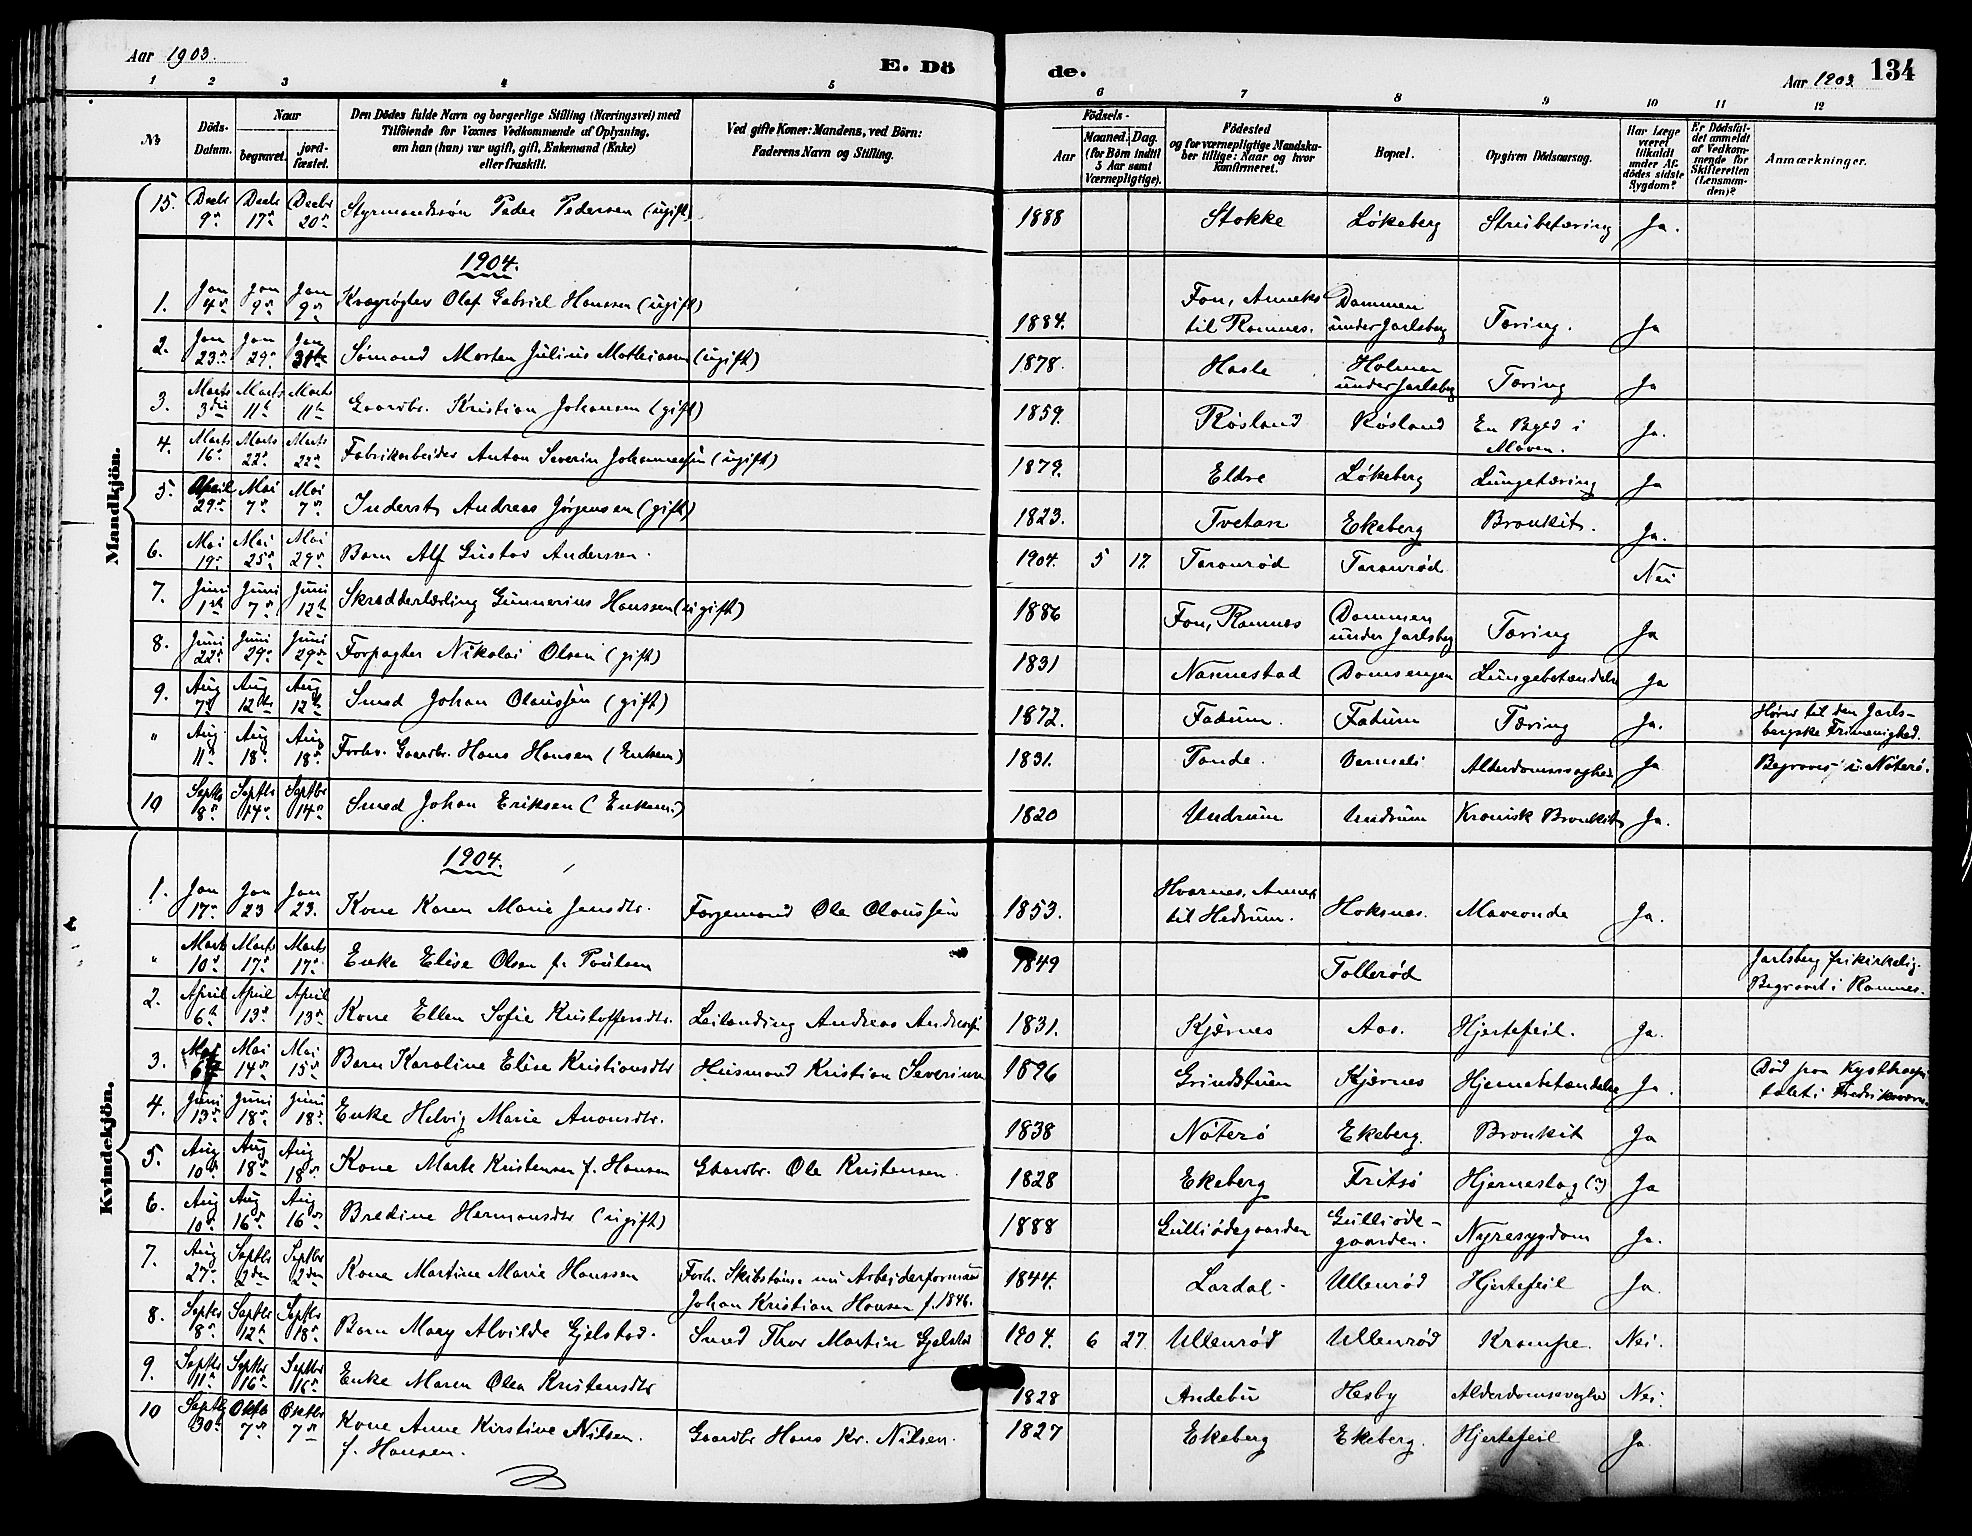 Aar 1903.
E. Dö
de.
Aar 1903.
134
1 2 3 4 5 6 7 8 9 10 11 12
No
Döds-
Datum.
Naar
begravet.
jord-
fæstet.
Den Dödes fulde Navn og borgerlige Stilling (Næringsvei) med
Tilföiende for Voxnes Vedkommende af Oplysning,
om han (hun) var ugift, gift, Enkemand (Enke)
eller fraskilt.
Ved gifte Koner: Mandens, ved Börn:
Faderens Navn og Stilling.
Födsels-
Aar
Maaned. Dag.
(for Börn indtil
5 Aar samt
Værnepligtige).
Födested
og for værnepligtige Mandska-
ber tillige: Naar og hvor
konfirmeret.
Bopæl.
Opgiven Dödsaarsag.
Har Læge
været
tilkaldt
under Af-
dödes sidste
Sygdom?
Er Dödsfal-
det anmeldt
af Vedkom-
mende for
Skifteretten
(Lensman-
den)?
Anmærkninger.
Mandkjön.
15. Decbr 9de Decbr 17de Decbr 20de Styrmandssøn Peder Pedersen (ugift) 1888 Stokke Løkeberg Strubetæring Ja.
1904.
1. Jan 4de Jan 9de Jan 9de Kvægrøgter Olaf Gabriel Hanssen (ugift) 1884. Fon, Anneks til Ramnes. Dammen under Jarlsberg Tæring. Ja
2. Jan 23de Jan 29de Jan 31te Sømand Morten Julius Mathiasen (ugift) 1878. Hasle Holmen under Jarlsberg Tæring Ja
3. Marts 3die Marts 11te Marts 11te Gaardbr. Kristian Johansen (gift) 1859. Røsland Røsland En Byld i Maven. Ja.
4. Marts 16de Marts 22de Marts 22de Fabrikarbeider Anton Severin Johannessen (ugift) 1879. Eldre Løkeberg Lungetæring Ja
5. April 29de Mai 7de Mai 7de Inderst Andreas Jørgensen (gift) 1823. Tvetan Ekeberg Bronkit. Ja.
6. Mai 19de Mai 25de Mai 29de Barn Alf Gustav Anderssen. 1904. 5 17. Taranrød Taranrød Nei
7. Juni 1ste Juni 7de Juni 12te Skrædderlærling Gunnerius Hanssen (ugift) 1886 Fon, Ramnes Dammen under Jarlsberg Tæring Ja
8. Juni 22de Juni 29de Juni 29de Forpagter Nikolai Olsen (gift) 1831 Nannestad Damsengen Lungebetændelse Ja
9. Aug 7de Aug 12te Aug 12te Smed Johan Olaussen (gift) 1872. Fadum. Fadum Tæring Ja. Hører til den Jarls-
bergske Frimenighed.
" Aug 11te Aug 18de Aug 18de Forhv. Gaardbr. Hans Hansen (Enkem) 1831. Tande. Ja Begravet i Nøterø.
10 Septbr 8de Septbr 14de Septbr 14de Smed Johan Eriksen (Enkem.) 1820 Undrum Undrum Kronisk Bronkit Ja.
Kvindekjön.
1904.
1. Jan 17de Jan 23 Jan 23. Kone Karen Marie Jensdtr. Forgemand Ole Olaussen 1853. Hvarnes, Annex til Hedrum. Haksnes. Maveonde Ja.
" Marts 10de Marts 17de Marts 17de Enke Elise Olsen f. Paulsen 1849 Tollerød Jarlsberg frikirkelig.
Begravet i Ramnes.
2. April 6te April 13de April 13de Kone Ellen Sofie Kristoffersdtr. Leilænding Andreas Andersen 1831. Kjærnes Aas. Hjertefeil. Ja.
3. Mai Mai 14de Mai 15de Barn Karoline Elise Kristiansdtr Husmand Kristian Severinsen 1896 Grindstuen Kjærnes Hjernebetændelse Ja. Død paa Kysthospi-
talet i Fredriksværn.
4. Juni 13de Juni 18de Juni 18de Enke Helvig Marie Amonsdtr. 1838 Nøterø Ekeberg. Bronkit Ja
5. Aug 10de Aug 18de Aug 18de Kone Marte Kristensen f. Hansen Gaardbr. Ole Kristensen. 1828 Ekeberg Fritsø Hjerneslag (?) Ja
6. Aug 10de Aug 16de Aug 16de Bredine Hermansdtr (ugift) 1888 Gulliødegaarden Gulliøde-
gaarden. Nyresygdom Ja.
7. Aug 27de Septbr 2den Septbr 2den Kone Martine Marie Hanssen Forh. Skibstømm. nu Arbeiderformand
Johan Kristian Hansen f. 1846. 1844. Lardal. Ullenrød Hjertefeil Ja.
8. Septbr 8de Septbr 12te Septbr 18de Barn Mary Alvilde Gjelstad. Smed Thor Martin Gjelstad 1904. 6 27. Ullenrød Ullenrød Krampe. Nei.
9. Septbr 11te Septbr 16de Septbr 16de Enke Maren Olea Kristensdtr 1828 Andebu Hesby Alderdomssvaghed Nei.
10 Septbr 30te Oktbr 7de Oktbr 7de Kone Anne Kirstine Nilsen.
f. Hansen. Gaardbr Hans Kr. Nilsen. 1827 Ekeberg Ekeberg. Hjertefeil Ja.